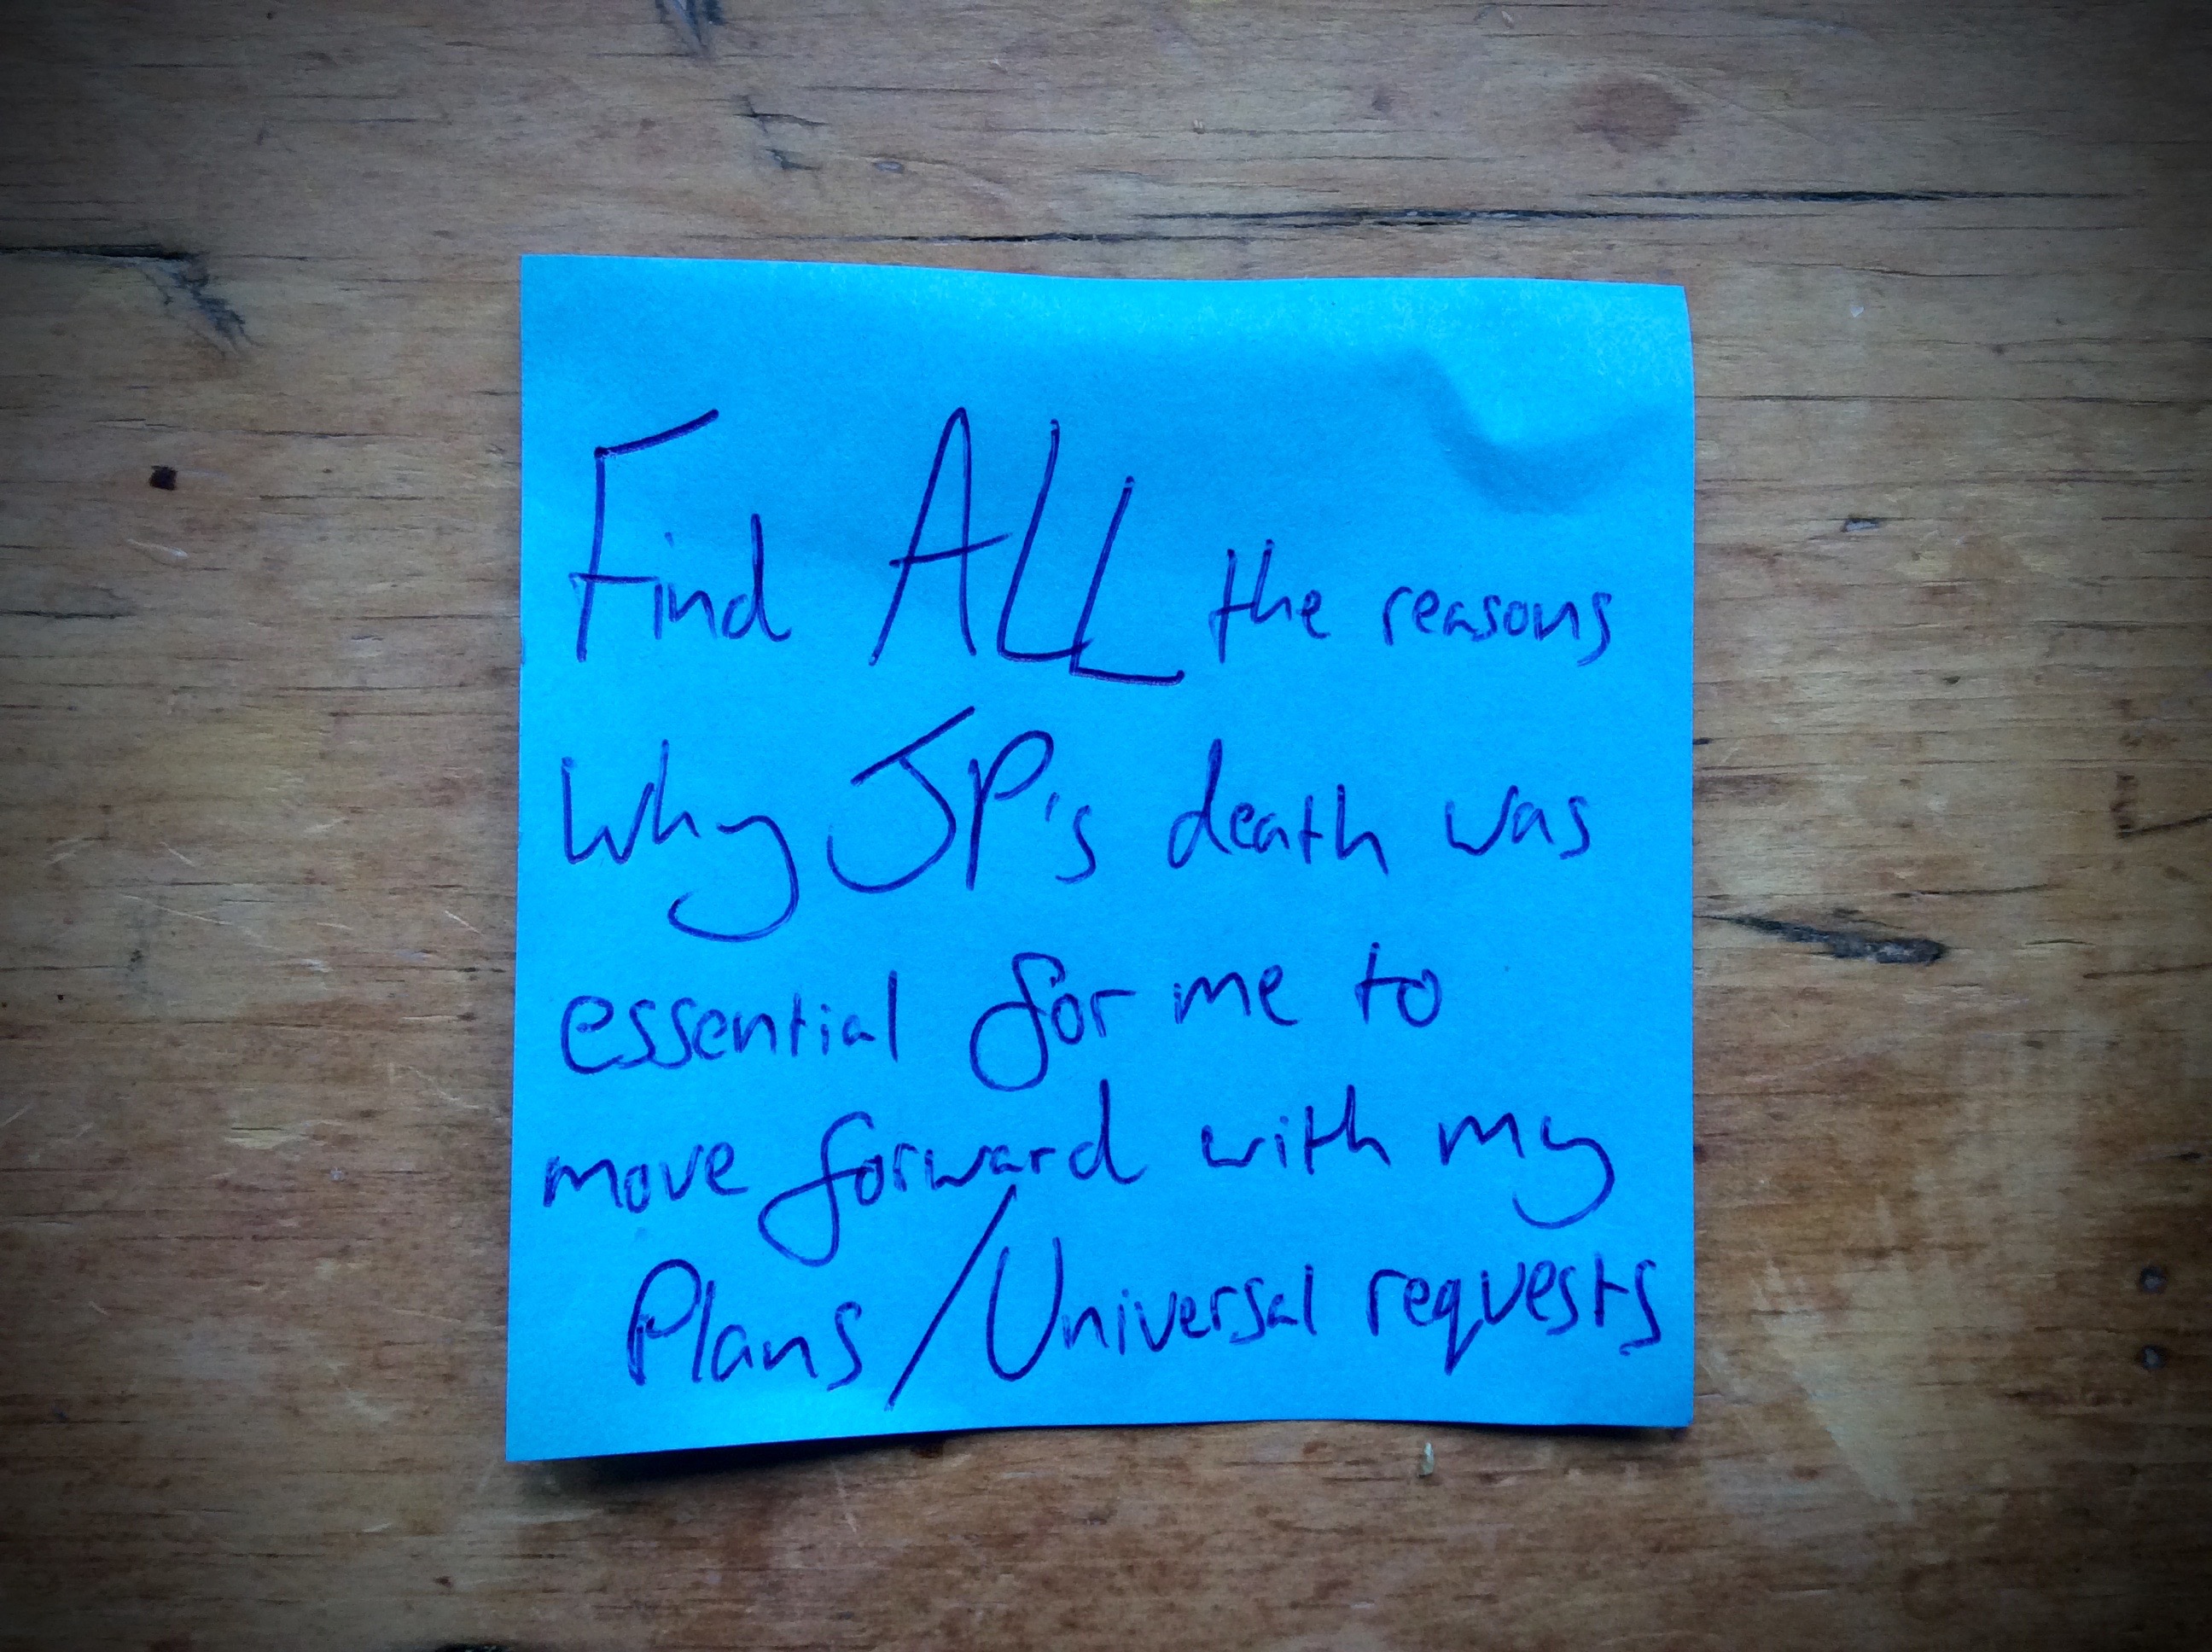 Find ALL the reasons
Why JP's death was
essential for me to
move forward with my
Plans/Universal requests